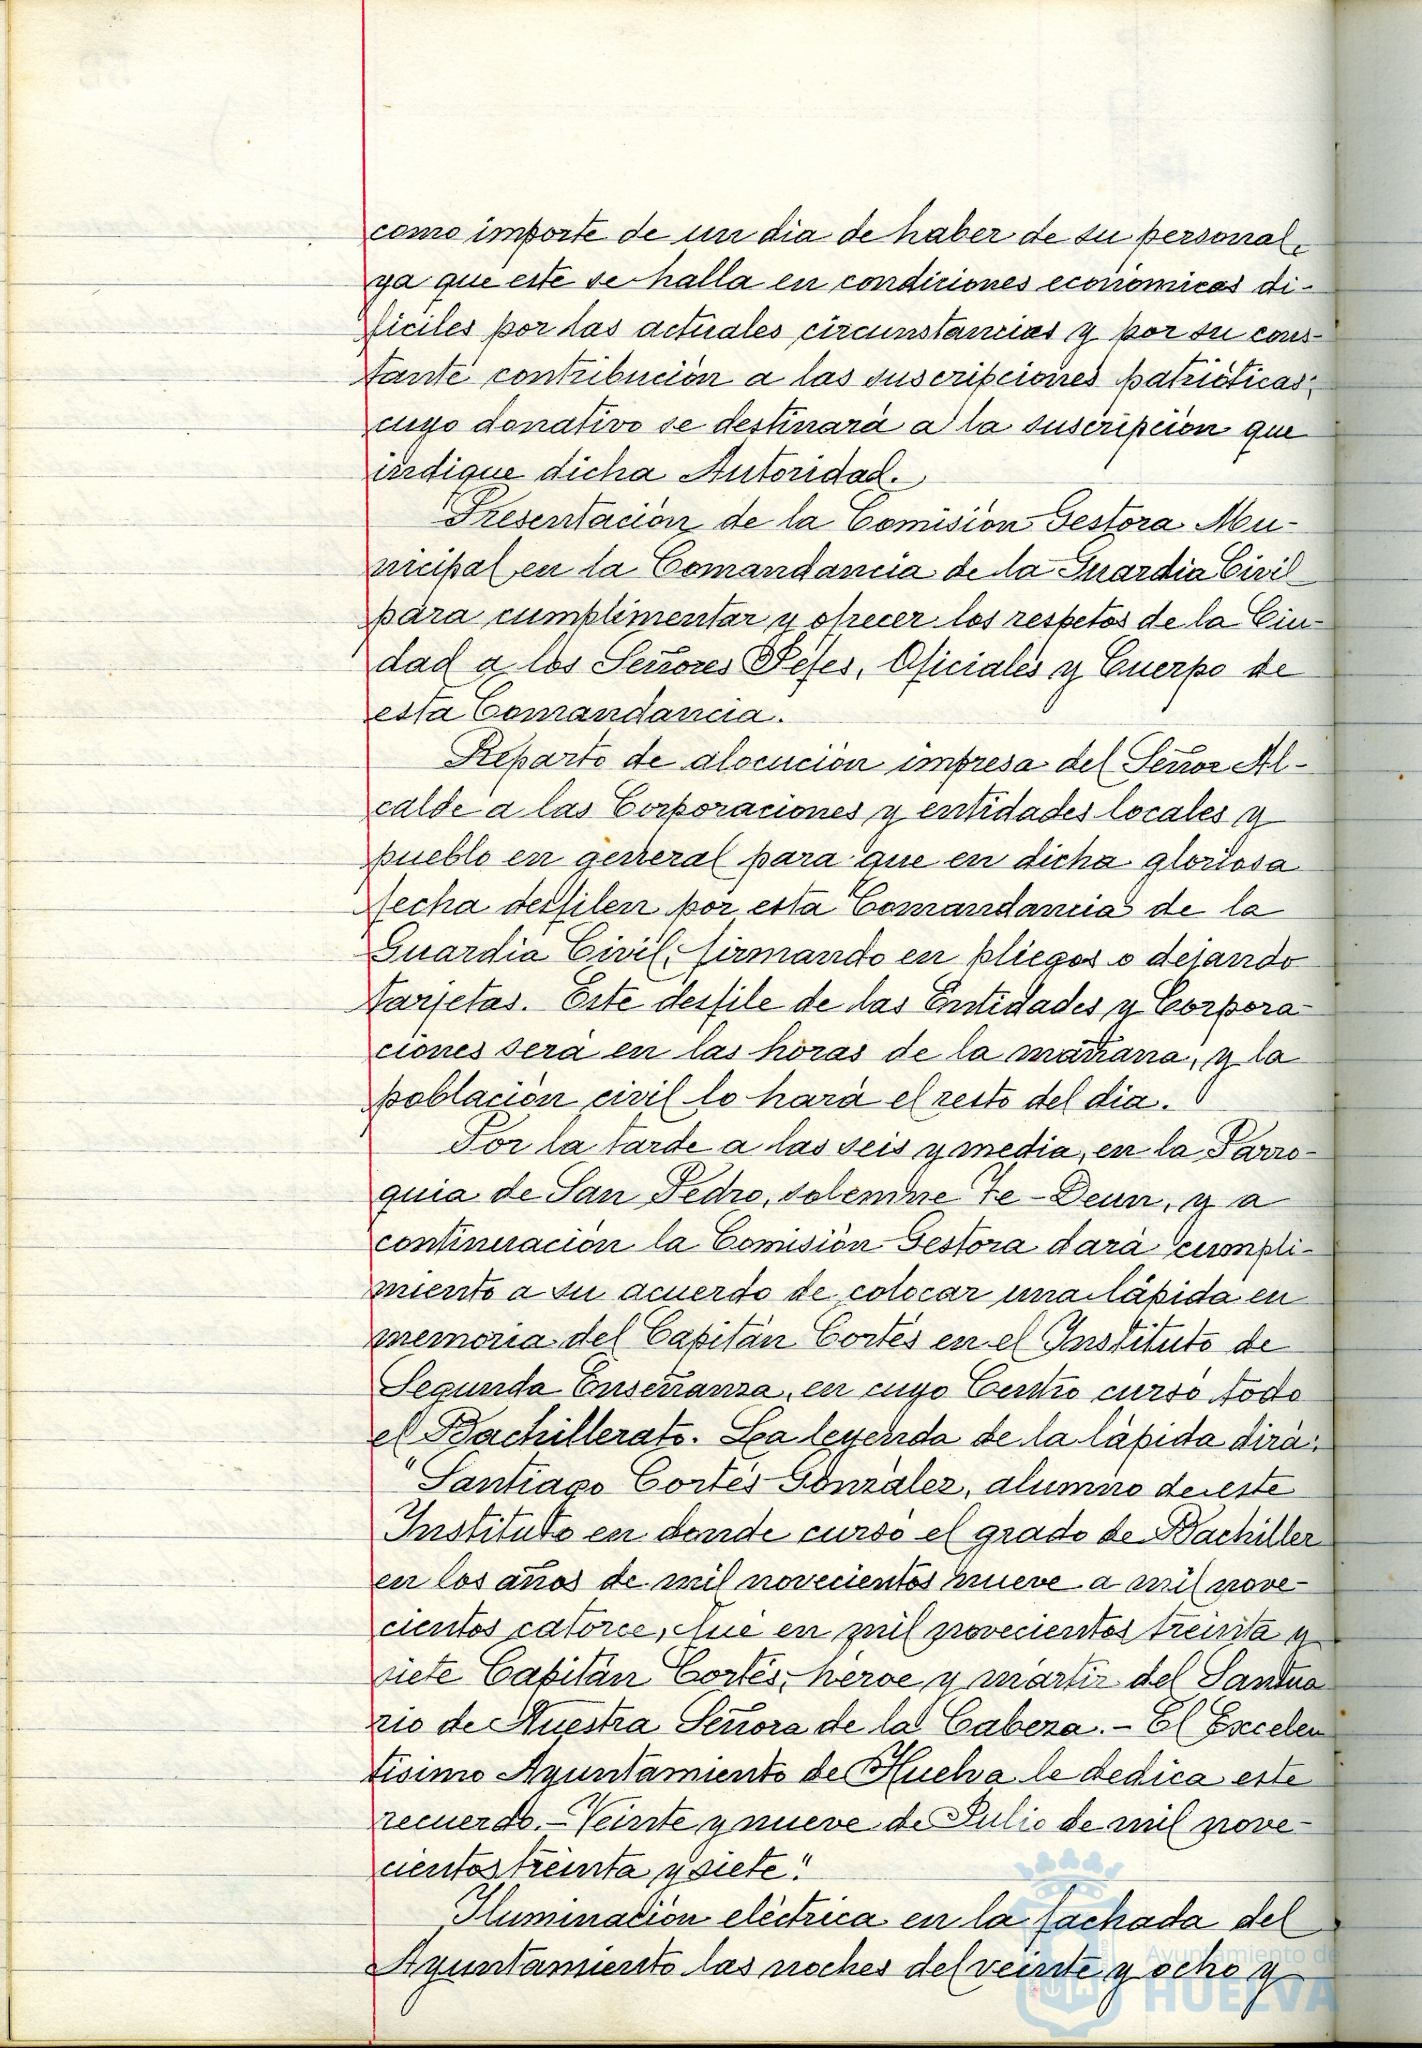 como importe de un dia de haber de su personal,
ya que este se halla en condiciones económicas di-
ficiles por las actuales circunstancias y por su cons-
tante contribución a las suscripciones patrióticas;
cuyo donativo se destinará a la suscripción que
indique dicha Autoridad.
Presentación de la Comisión Gestora Mu-
nicipal en la Comandancia de la Guardia Civil
para cumplimentar y ofrecer los respetos de la Ciu-
dad a los Señores Jefes, Oficiales y Cuerpo de
esta Comandancia.
Reparto de alocución impresa del Señor Al-
calde a las Corporaciones y entidades locales y
pueblo en general para que en dicha gloriosa
fecha desfilen por esta Comandancia de la
Guardia Civil, firmando en pliegos o dejando
tarjetas. Este desfile de las Entidades y Corpora-
ciones será en las horas de la mañana, y la
población civil lo hará el resto del dia.
Por la tarde a las seis y media, en la Parro-
quia de San Pedro, solemne Te-Deun, y a
continuación la Comisión Gestora dará cumpli-
miento a su acuerdo de colocar una lápida en
memoria del Capitán Cortés en el Instituto de
Segunda Enseñanza, en cuyo Centro cursó todo
el Bachillerato. La leyenda de la lápida dirá:
"Santiago Cortés González, alumno de este
Instituto en donde cursó el grado de Bachiller
en los años de mil novecientos nueve a mil nove-
cientos catorce, fué en mil novecientos treinta y
siete Capitán Cortés, héroe y mártir del Santua
rio de Nuestra Señora de la Cabeza.- El Excelen
tisimo Ayuntamiento de Huelva le dedica este
recuerdo.- Veinte y nueve de Julio de mil nove-
cientos treinta y siete".
Iluminación eléctrica en la fachada del
Ayuntamiento las noches del veinte y ocho y
Ayuntamiento de
HUELVA